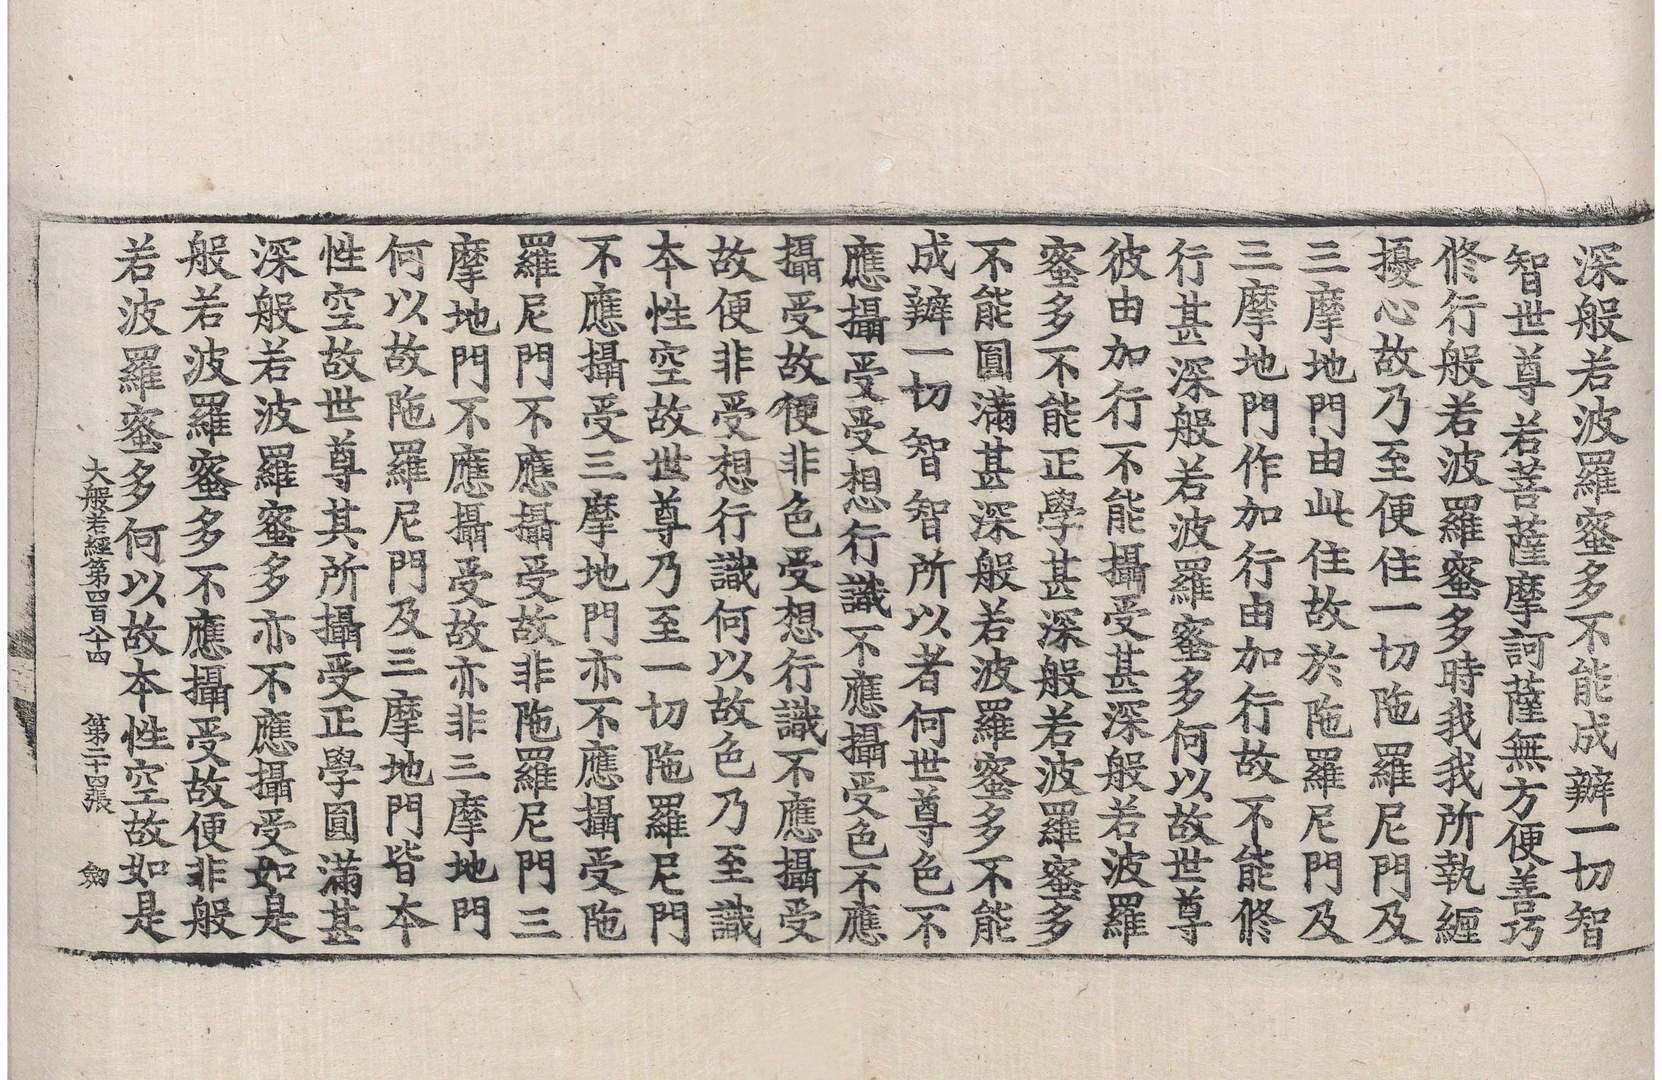 深般若波羅蜜多不能成辦一切智
智世尊若菩薩摩訶薩無方便善巧
修行般若波羅蜜多時我我所執纏
擾心故乃至便住一切陁羅尼門及
三摩地門由此住故於陁羅尼門及
三摩地門作加行由加行故不能修
行甚深般若波羅蜜多何以故世尊
彼由加行不能攝受甚深般若波羅
蜜多不能正學甚深般若波羅蜜多
不能圓滿甚深般若波羅蜜多不能
成辦一切智智所以者何世尊色不
應攝受受想行識不應攝受色不應
攝受故便非色受想行識不應攝受
故便非受想行識何以故色乃至識
本性空故世尊乃至一切陁羅尼門
不應攝受三摩地門亦不應攝受陁
羅尼門不應攝受故非陁羅尼門三
摩地門不應攝受故亦非三摩地門
何以故陁羅尼門及三摩地門皆本
性空故世尊其所攝受正學圓滿甚
深般若波羅蜜多亦不應攝受如是
般若波羅蜜多不應攝受故便非般
若波羅蜜多何以故本性空故如是
大般若經第四百八十四 第二十四張 劒